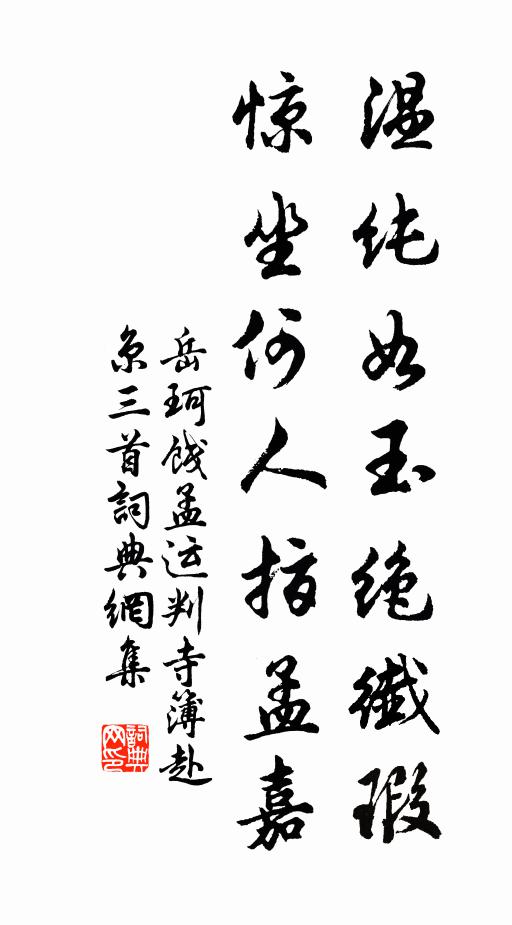 温纯如玉绝纤瑕
惊坐何人指孟嘉
岳珂饯孟运判寺簿赴
京三首詞典網集
詞典
网印